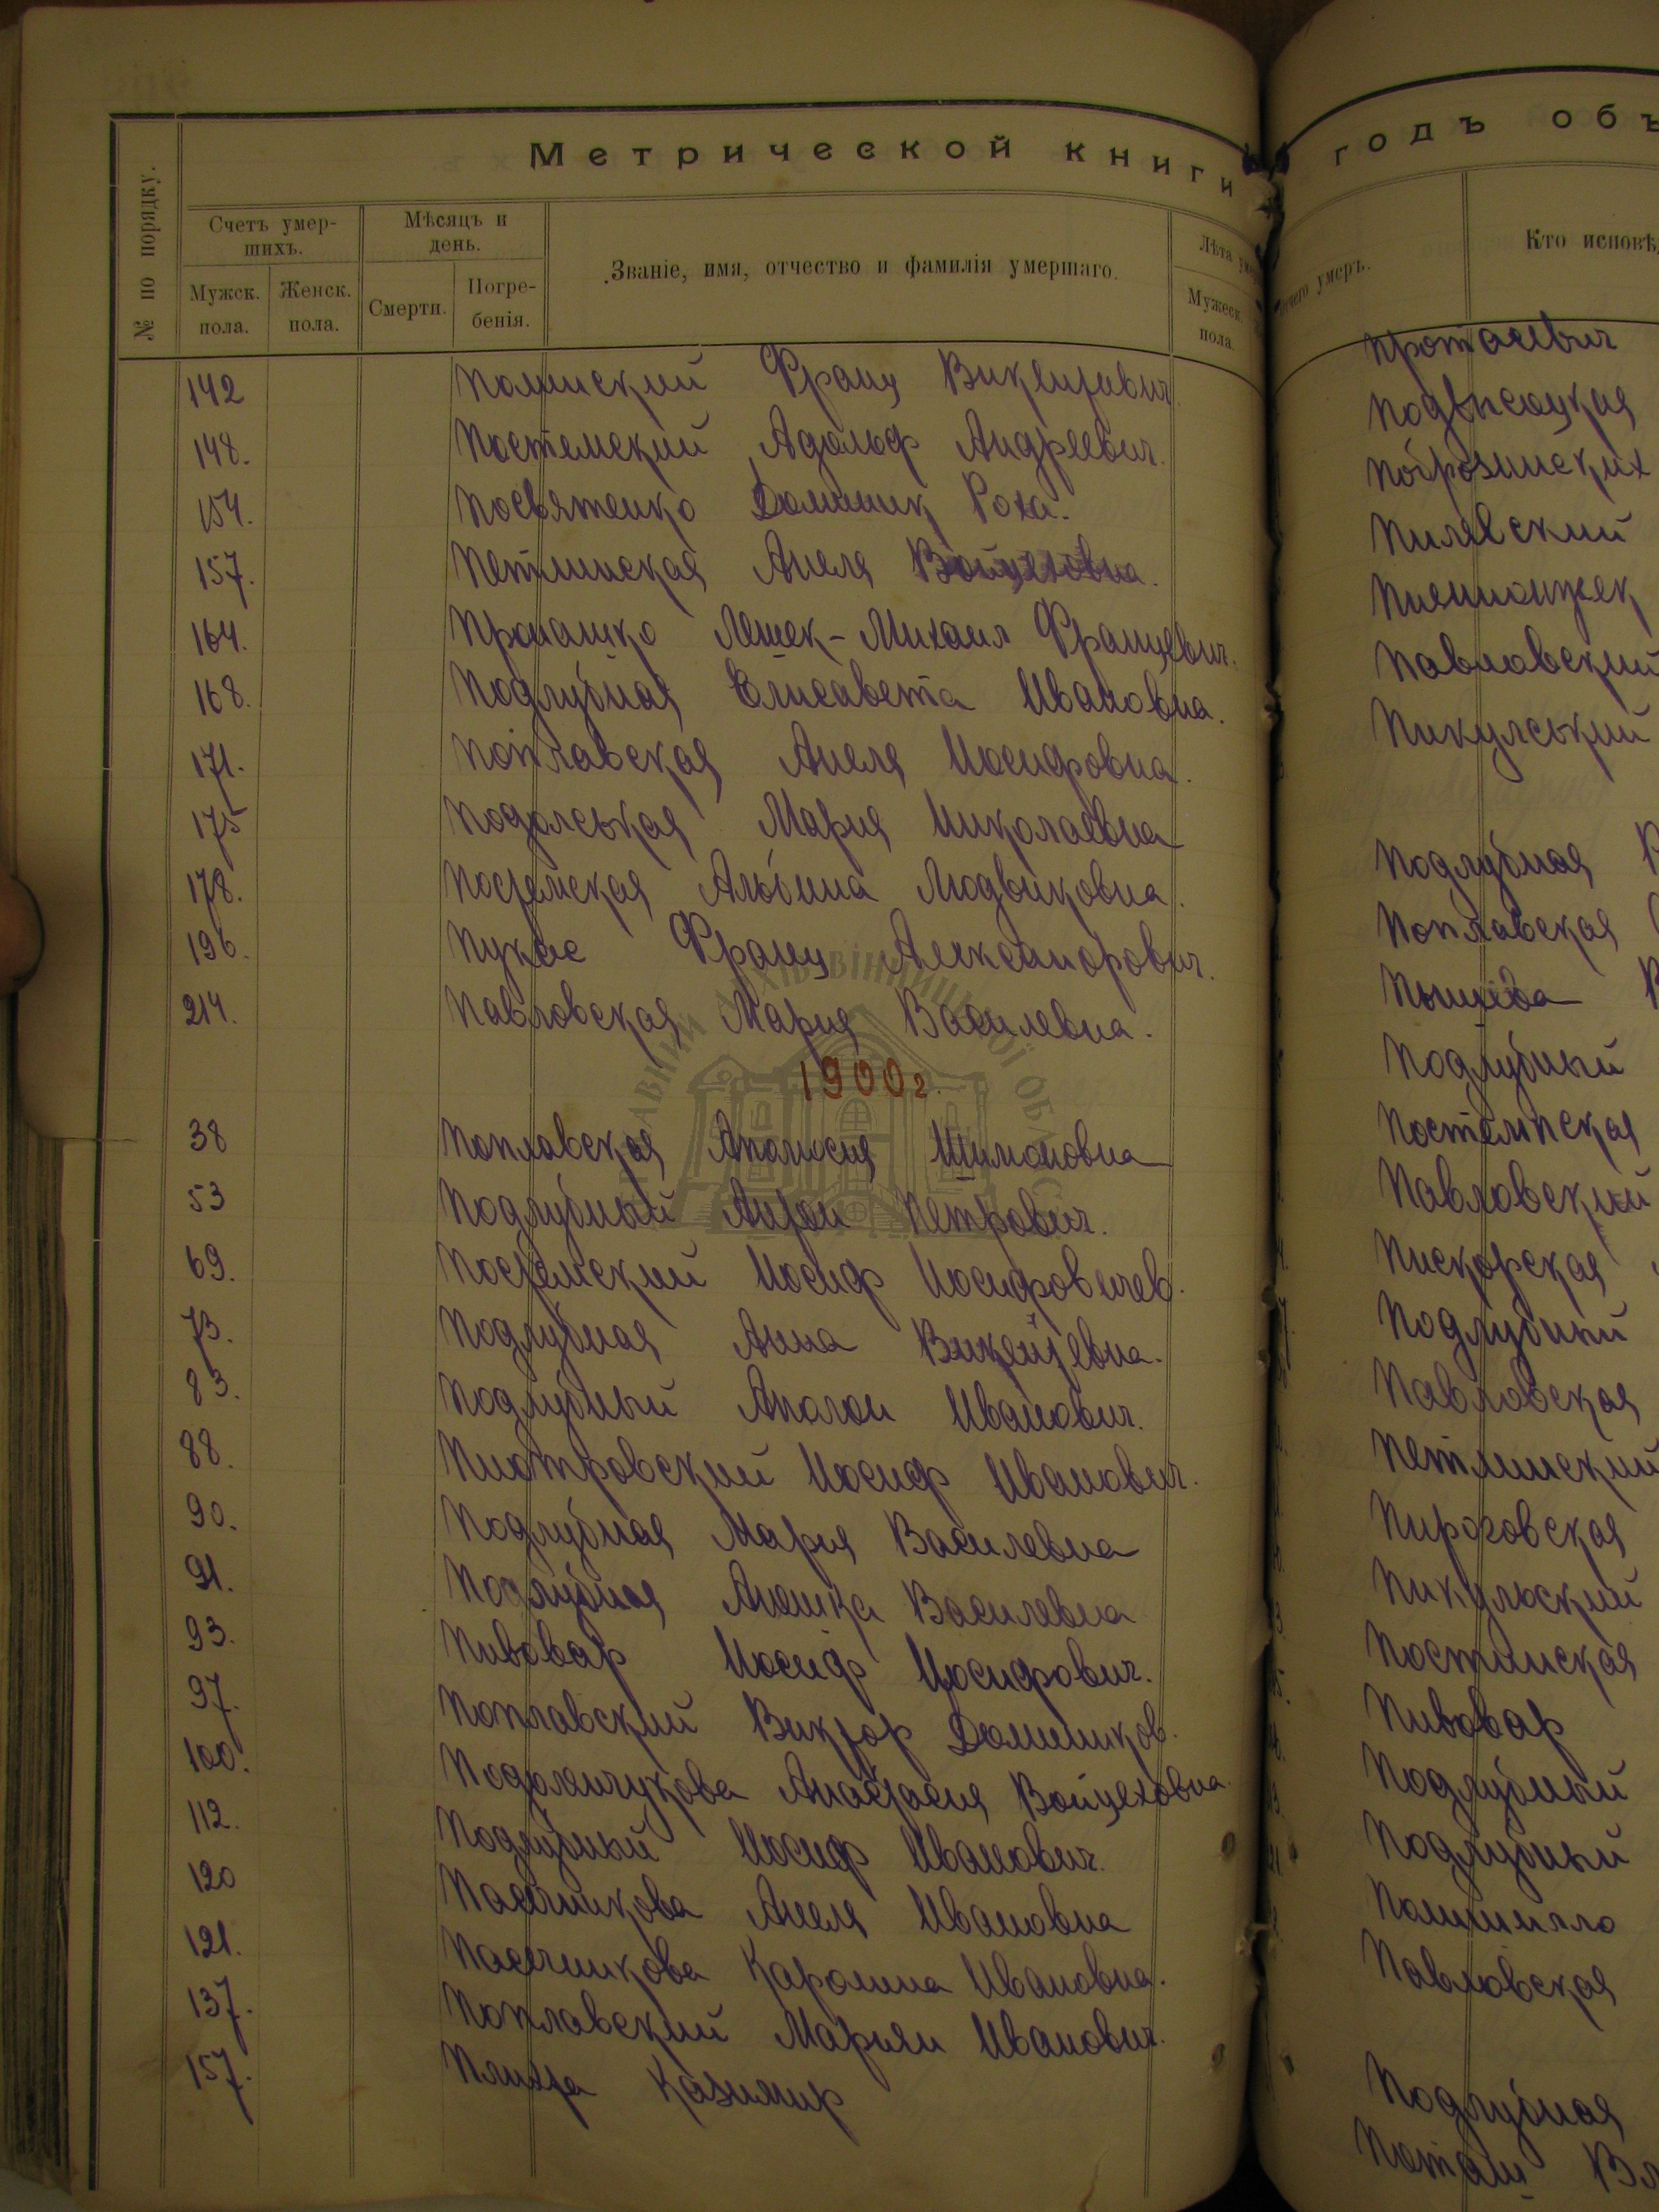 Метрической книги
№ по порядку.
Счетъ умер-
шихъ.
Мужск.
пола.
Женск.
пола.
Мѣсяцъ и
день.
Смерти.
Погре-
бенія.
Званіе, имя, отчество и фамилія умершаго.
Лѣта
Мужеск.
пола.
142 Франц Викентиевич.
148. Постемский Адольф Андреевич.
154. Посвятенко Доминик Роха.
157. Петлинская Анеля Войцеховна.
164. Пронашко Лешек-Михаил Францевич.
168. Подлубная Елисавета Ивановна.
171. Поплавская Анеля Иосифовна.
175 Подолськая Мария Николаевна
178. Постемская Альбина Людвиковна.
196. Пукас Франц Александрович.
214. Павловская Мария Василевна.
1900г.
38 Поплавская Аполюсия Шимоновна
53 Подлубный Антон Петрович.
69. Постемский Иосиф Иосифовичев.
73. Подлубная Анна Викентевна.
83. Подлубный Аполон Иванович.
88. Пиотровский Иосиф Иванович.
90. Подлубная Мария Василевна
91. Подлубная Анешка Василевна
93. Пивовар Иосиф Иосифович.
97. Поплавский Виктор Домиников.
100. Подолянчукова Анастасия Войцеховна.
112. Подлубный Иосиф Иванович.
120 Пасечникова Анеля Ивановна
121. Пасечникова Каролина Ивановна.
137. Поплавский Марьян Иванович.
157. Казимир
годъ объ
чего умеръ.
Кто исповѣ
Протасевич
Подвысоцкая
Побрезинских
Пилявский
Павловский
Пикулський
Подлубная
Поплавская
Подлубный
Постемпская
Павловский
Пискорская
Подлубный
Павловская
Петлинский
Пироговская
Пикульский
Постемская
Пивовар
Подлубный
Подлубный
Павловская
Подлубная
Поташ Вл